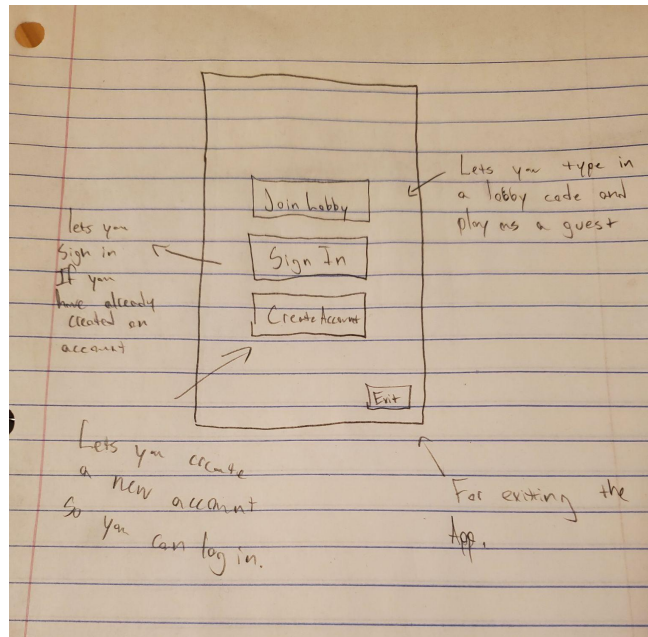 Join Lobby
Sign In
Create Account
Exit
Lets you type in
a lobby code and
play as a guest
lets you
Sign in
If you
have already
created an
account
Lets you create
a new account
so you can log in.
For exiting the
App.